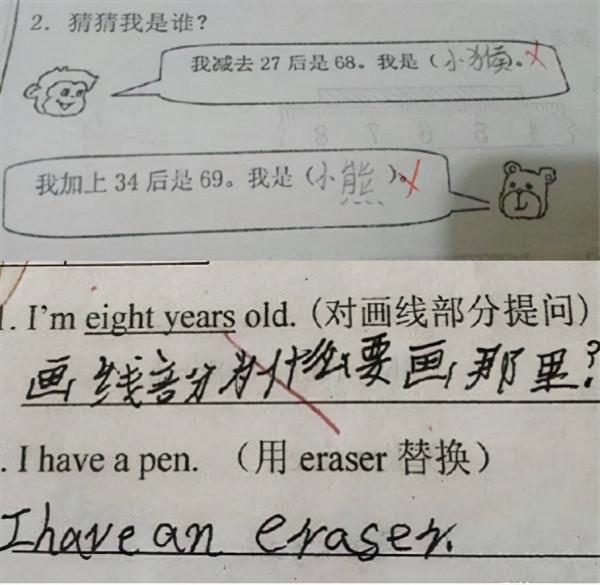 2. 猜猜我是谁?
我减去 27 后是 68。我是(小猴)。
我加上 34 后是 69。我是(小熊)。
1. I'm eight years old. (对画线部分提问)
画线部分为什么要画那里?
. I have a pen. (用 eraser 替换)
I have an eraser.